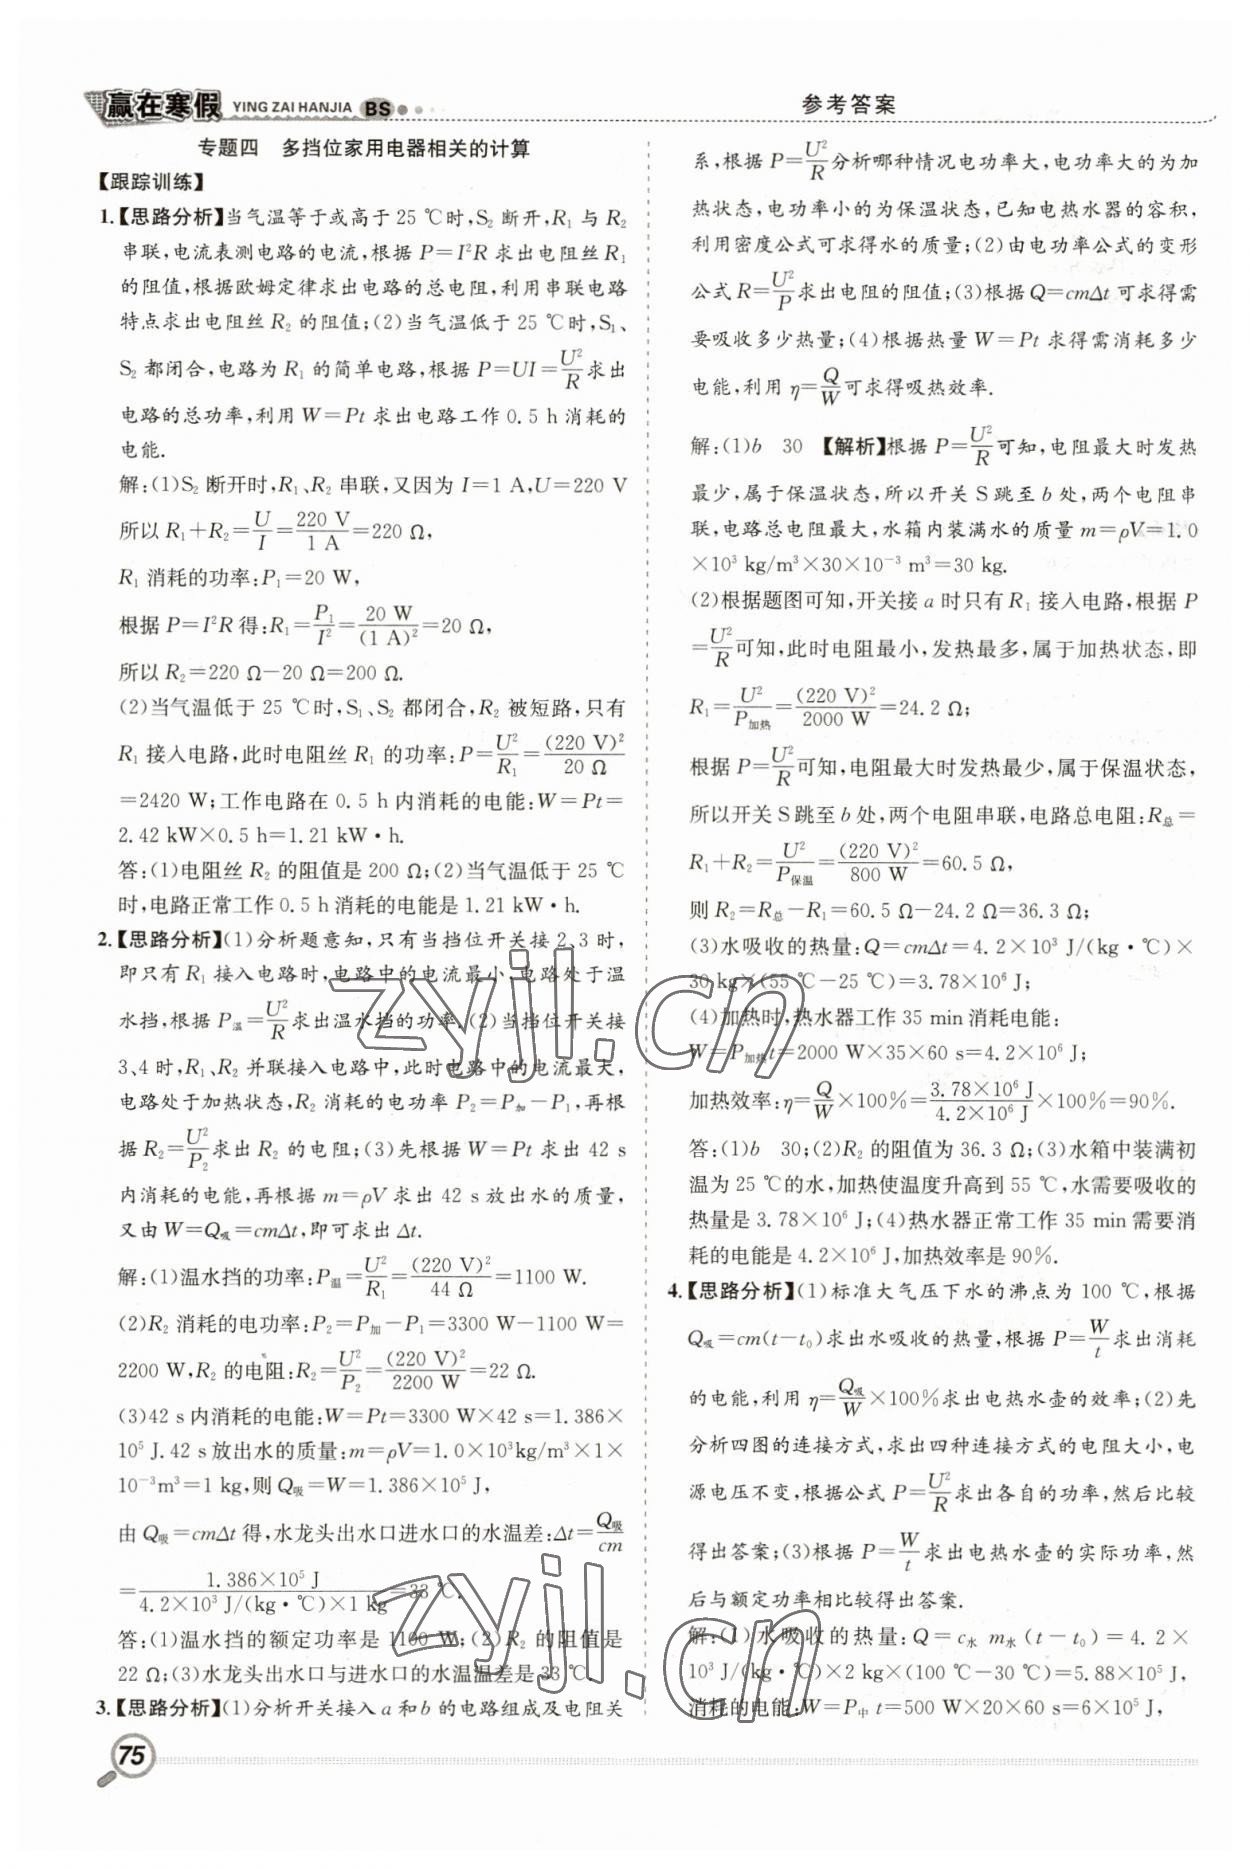 赢在寒假 YING ZAI HANJIA BS
参考答案
专题四 多挡位家用电器相关的计算
【跟踪训练】
1.【思路分析】当气温等于或高于 25 ℃时,S₂ 断开,R₁ 与 R₂
串联,电流表测电路的电流,根据 P=I²R 求出电阻丝 R₁
的阻值,根据欧姆定律求出电路的总电阻,利用串联电路
特点求出电阻丝 R₂ 的阻值;(2)当气温低于 25 ℃时,S₁、
S₂ 都闭合,电路为 R₁ 的简单电路,根据 P=UI=U²/R求出
电路的总功率,利用 W=Pt 求出电路工作 0.5 h 消耗的
电能.
解:(1)S₂ 断开时,R₁、R₂ 串联,又因为 I=1 A,U=220 V
所以 R₁+R₂=U/I=220 V/1 A=220 Ω,
R₁ 消耗的功率:P₁=20 W,
根据 P=I²R 得:R₁=P₁/I²=20 W/(1 A)²=20 Ω,
所以 R₂=220 Ω-20 Ω=200 Ω.
(2)当气温低于 25 ℃时,S₁、S₂ 都闭合,R₂ 被短路,只有
R₁ 接入电路,此时电阻丝 R₁ 的功率:P=U²/R₁=(220 V)²/20 Ω
=2420 W;工作电路在 0.5 h 内消耗的电能:W=Pt=
2.42 kW×0.5 h=1.21 kW·h.
答:(1)电阻丝 R₂ 的阻值是 200 Ω;(2)当气温低于 25 ℃
时,电路正常工作 0.5 h 消耗的电能是 1.21 kW·h.
2.【思路分析】(1)分析题意知,只有当挡位开关接 2、3 时,
即只有 R₁ 接入电路时,电路中的电流最小,电路处于温
水挡,根据 P温=U²/R求出温水挡的功率.(2)当挡位开关接
3、4 时,R₁、R₂ 并联接入电路中,此时电路中的电流最大,
电路处于加热状态,R₂ 消耗的电功率 P₂=P加-P₁,再根
据 R₂=U²/P₂求出 R₂ 的电阻;(3)先根据 W=Pt 求出 42 s
内消耗的电能,再根据 m=ρV 求出 42 s 放出水的质量,
又由 W=Q吸=cmΔt,即可求出 Δt.
解:(1)温水挡的功率:P温=U²/R₁=(220 V)²/44 Ω=1100 W.
(2)R₂ 消耗的电功率:P₂=P加-P₁=3300 W-1100 W=
2200 W,R₂ 的电阻:R₂=U²/P₂=(220 V)²/2200 W=22 Ω.
(3)42 s 内消耗的电能:W=Pt=3300 W×42 s=1.386×
10⁵ J.42 s 放出水的质量:m=ρV=1.0×10³kg/m³×1×
10⁻³m³=1 kg,则 Q吸=W=1.386×10⁵ J,
由 Q吸=cmΔt 得,水龙头出水口进水口的水温差:Δt=Q吸/cm
=1.386×10⁵ J/4.2×10³ J/(kg·℃)×1 kg=33 ℃.
答:(1)温水挡的额定功率是 1100 W;(2)R₂ 的阻值是
22 Ω;(3)水龙头出水口与进水口的水温温差是 33 ℃.
3.【思路分析】(1)分析开关接入 a 和 b 的电路组成及电阻关
系,根据 P=U²/R分析哪种情况电功率大,电功率大的为加
热状态,电功率小的为保温状态,已知电热水器的容积,
利用密度公式可求得水的质量;(2)由电功率公式的变形
公式 R=U²/P求出电阻的阻值;(3)根据 Q=cmΔt 可求得需
要吸收多少热量;(4)根据热量 W=Pt 求得需消耗多少
电能,利用 η=Q/W可求得吸热效率.
解:(1)b 30 【解析】根据 P=U²/R可知,电阻最大时发热
最少,属于保温状态,所以开关 S 跳至 b 处,两个电阻串
联,电路总电阻最大,水箱内装满水的质量 m=ρV=1.0
×10³ kg/m³×30×10⁻³ m³=30 kg.
(2)根据题图可知,开关接 a 时只有 R₁ 接入电路,根据 P
=U²/R可知,此时电阻最小,发热最多,属于加热状态,即
R₁=U²/P加热=(220 V)²/2000 W=24.2 Ω;
根据 P=U²/R可知,电阻最大时发热最少,属于保温状态,
所以开关 S 跳至 b 处,两个电阻串联,电路总电阻:R总=
R₁+R₂=U²/P保温=(220 V)²/800 W=60.5 Ω,
则 R₂=R总-R₁=60.5 Ω-24.2 Ω=36.3 Ω;
(3)水吸收的热量:Q=cmΔt=4.2×10³ J/(kg·℃)×
30 kg×(55 ℃-25 ℃)=3.78×10⁶ J;
(4)加热时,热水器工作 35 min 消耗电能:
W=P加热t=2000 W×35×60 s=4.2×10⁶ J;
加热效率:η=Q/W×100%=3.78×10⁶ J/4.2×10⁶ J×100%=90%.
答:(1)b 30;(2)R₂ 的阻值为 36.3 Ω;(3)水箱中装满初
温为 25 ℃的水,加热使温度升高到 55 ℃,水需要吸收的
热量是 3.78×10⁶ J;(4)热水器正常工作 35 min 需要消
耗的电能是 4.2×10⁶ J,加热效率是 90%.
4.【思路分析】(1)标准大气压下水的沸点为 100 ℃,根据
Q吸=cm(t-t₀)求出水吸收的热量,根据 P=W/t求出消耗
的电能,利用 η=Q吸/W×100%求出电热水壶的效率;(2)先
分析四图的连接方式,求出四种连接方式的电阻大小,电
源电压不变,根据公式 P=U²/R求出各自的功率,然后比较
得出答案;(3)根据 P=W/t求出电热水壶的实际功率,然
后与额定功率相比较得出答案.
解:(1)水吸收的热量:Q=c水 m水(t-t₀)=4.2×
10³ J/(kg·℃)×2 kg×(100 ℃-30 ℃)=5.88×10⁵J,
消耗的电能:W=P中 t=500 W×20×60 s=6×10⁵ J,
75
zyjl.cn
zyjl.cn